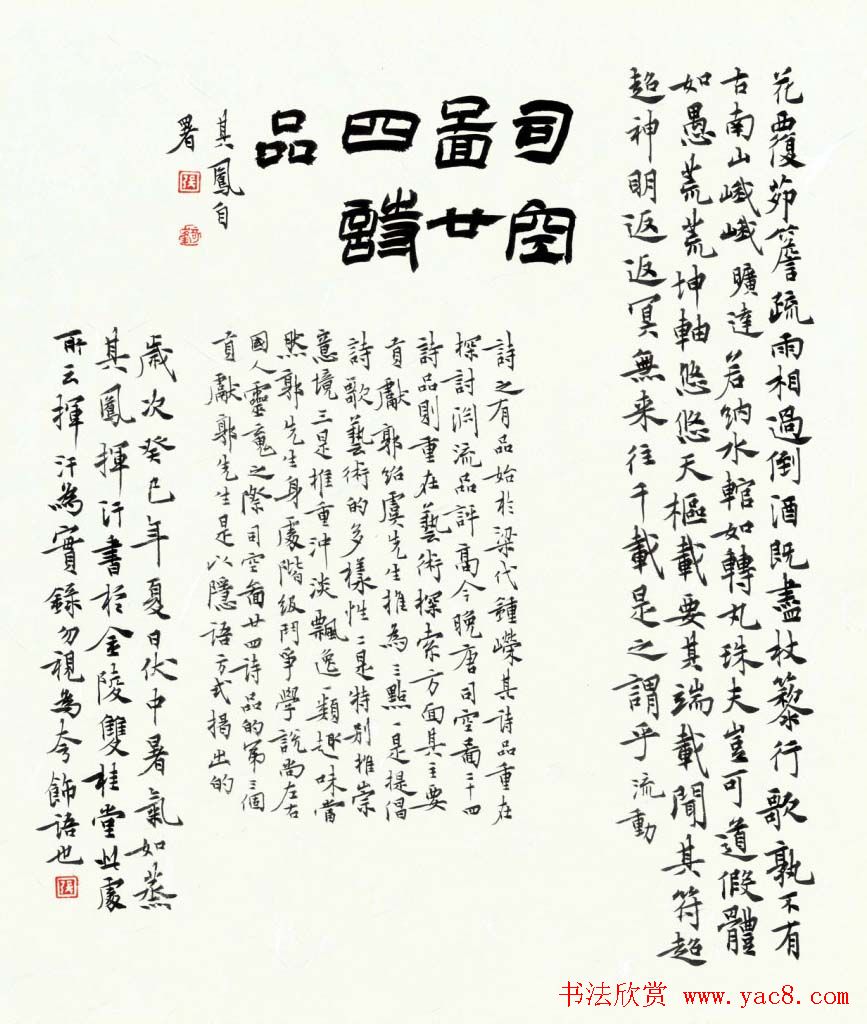 花覆茆簷疏雨相過倒酒既盡杖藜行歌孰不有
古南山峨峨曠達若納水輨如轉丸珠夫豈可道假體
如愚荒荒坤軸悠悠天樞載要其端載聞其符超
超神明返返冥無来往千載是之謂乎流動
司空
圖廿
四詩
品
其鳳自
署
詩之有品始於梁代鍾嶸其詩品重在
探討淵流品評高今晚唐司空圖二十四
詩品則重在藝術探索方面其主要
貢獻郭紹虞先生推為三點一是提倡
詩歌藝術的多樣性二是特別推崇
意境三是推重沖淡飄逸一類趣味當
然郭先生身處階級鬥爭學說尚左右
國人靈魂之際司空圖廿四詩品的第三個
貢獻郭先生是以隱語方式揭出的
歲次癸巳年夏日伏中暑氣如蒸
其鳳揮汗書於金陵雙桂堂此處
所云揮汗為實錄勿視為夸飾語也
书法欣赏 www.yac8.com